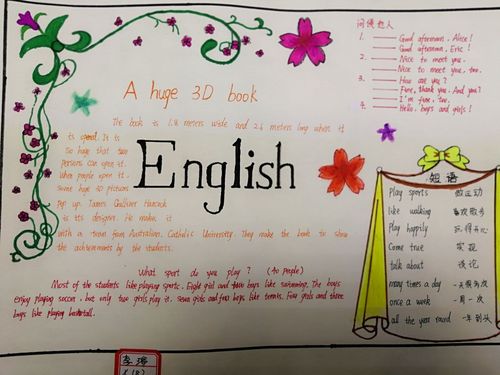 A huge 3D book
The book is 1.8 meters wide and 2.6 meters long when it
is opend. It is
so huge that two
persons can open it.
When people open it.
Some huge 3D pictures
Pop up. James Gulliver Hancock
is its designer. He makes it
with a team from Australian Catholic University. They make the book to show
the achievements by the students.
English
What sport do you play? (40 people)
Most of the students like playing sports. Eight girl and four boys like swimming. The boys
enjoy playing soccer, but only two girls play it. Seven girls and four boys like tennis. Four girls and three
boys like playing basketball.
问候他人
1. Good afternoon, Alice!
Good afternoon, Eric!
2. Nice to meet you.
Nice to meet you, too.
3. How are you?
Fine, thank you. And you?
I'm fine, too.
4. Hello, boys and girls!
短语
Play sports 做运动
like walking 喜欢散步
Play happily 玩得开心
Come true 实现
talk about 谈论
many times a day 一天很多次
once a week 一周一次
all the year round 一年到头